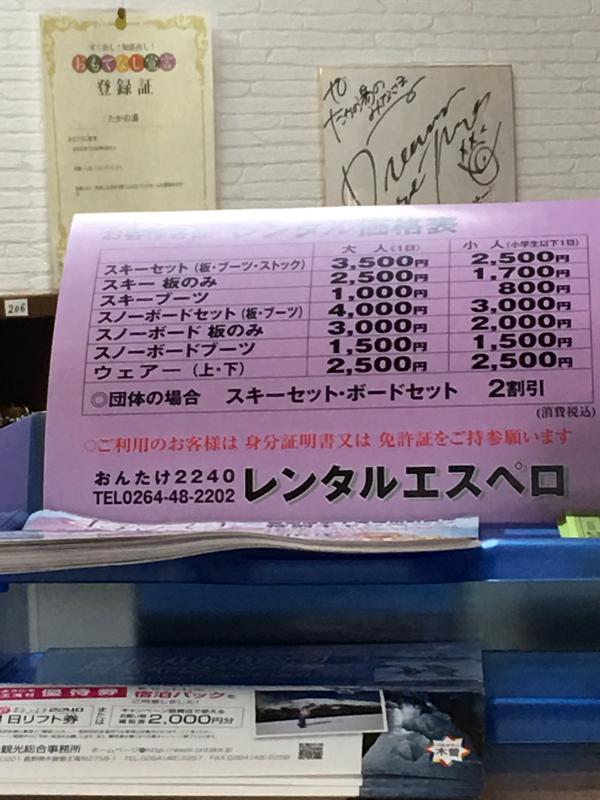 すぐ出し!知恵出し!
おもてなし宣言
登録証
たかの湯
to
たかの湯の
みなさま
206
レンタル価格表
大 人(1日) 小 人(小学生以下1日)
スキーセット(板・ブーツ・ストック) 3,500円 2,500円
スキー 板のみ 2,500円 1,700円
スキーブーツ 1,000円 800円
スノーボードセット(板・ブーツ) 4,000円 3,000円
スノーボード 板のみ 3,000円 2,000円
スノーボードブーツ 1,500円 1,500円
ウェアー(上・下) 2,500円 2,500円
◎団体の場合 スキーセット・ボードセット 2割引
(消費税込)
○ご利用のお客様は 身分証明書又は 免許証をご持参願います
おんたけ2240
TEL0264-48-2202
レンタルエスペロ
優待券 宿泊パックを
ご用意しました!
2240
1日リフト券
または
キャンペーン協賛店で使える
2,000円分
観光総合事務所
木曽